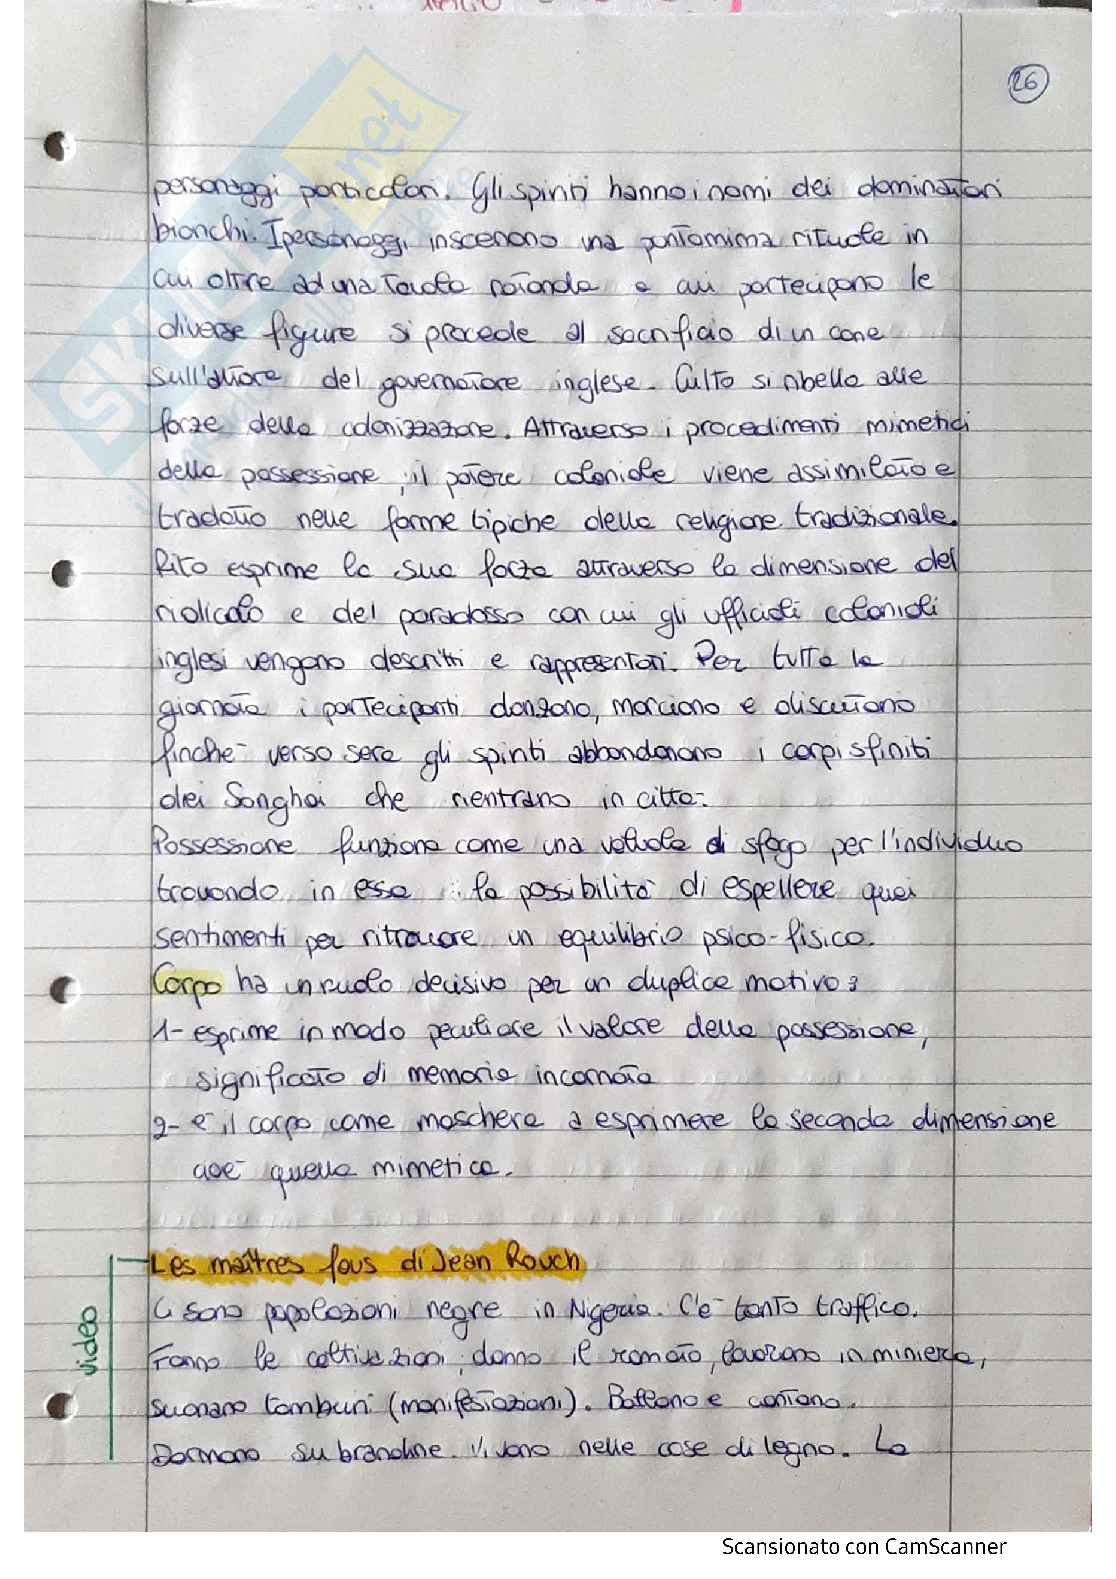 26
personaggi particolari. Gli spiriti hanno i nomi dei dominatori
bianchi. I personaggi inscenano una pantomima rituale in
cui oltre ad una tavola rotonda a cui partecipano le
diverse figure si procede al sacrificio di un cane
sull'altare del governatore inglese. Culto si ribella alle
forze della colonizzazione. Attraverso i procedimenti mimetici
della possessione, il potere coloniale viene assimilato e
tradotto nelle forme tipiche della religione tradizionale.
Rito esprime la sua forza attraverso la dimensione del
ridicolo e del paradosso con cui gli ufficiali coloniali
inglesi vengono descritti e rappresentati. Per tutta la
giornata i partecipanti danzano, marciano e discutono
finchè verso sera gli spiriti abbandonano i corpi sfiniti
dei Songhai che rientrano in città.
Possessione funziona come una valvola di sfogo per l'individuo
trovando in essa la possibilità di espellere quei
sentimenti per ritrovare un equilibrio psico-fisico.
Corpo ha un ruolo decisivo per un duplice motivo:
1- esprime in modo peculiare il valore della possessione,
significato di memoria incarnata
2- è il corpo come maschera a esprimere la seconda dimensione
cioè quella mimetica.
Les maîtres fous di Jean Rouch
video
Ci sono popolazioni negre in Nigeria. C'è tanto traffico.
Fanno le coltivazioni, danno il , lavorano in miniera,
suonano tamburi (manifestazioni). Ballano e cantano.
Dormono su brandine. Vivono nelle case di legno. La
SKUOLA.net
Scansionato con CamScanner